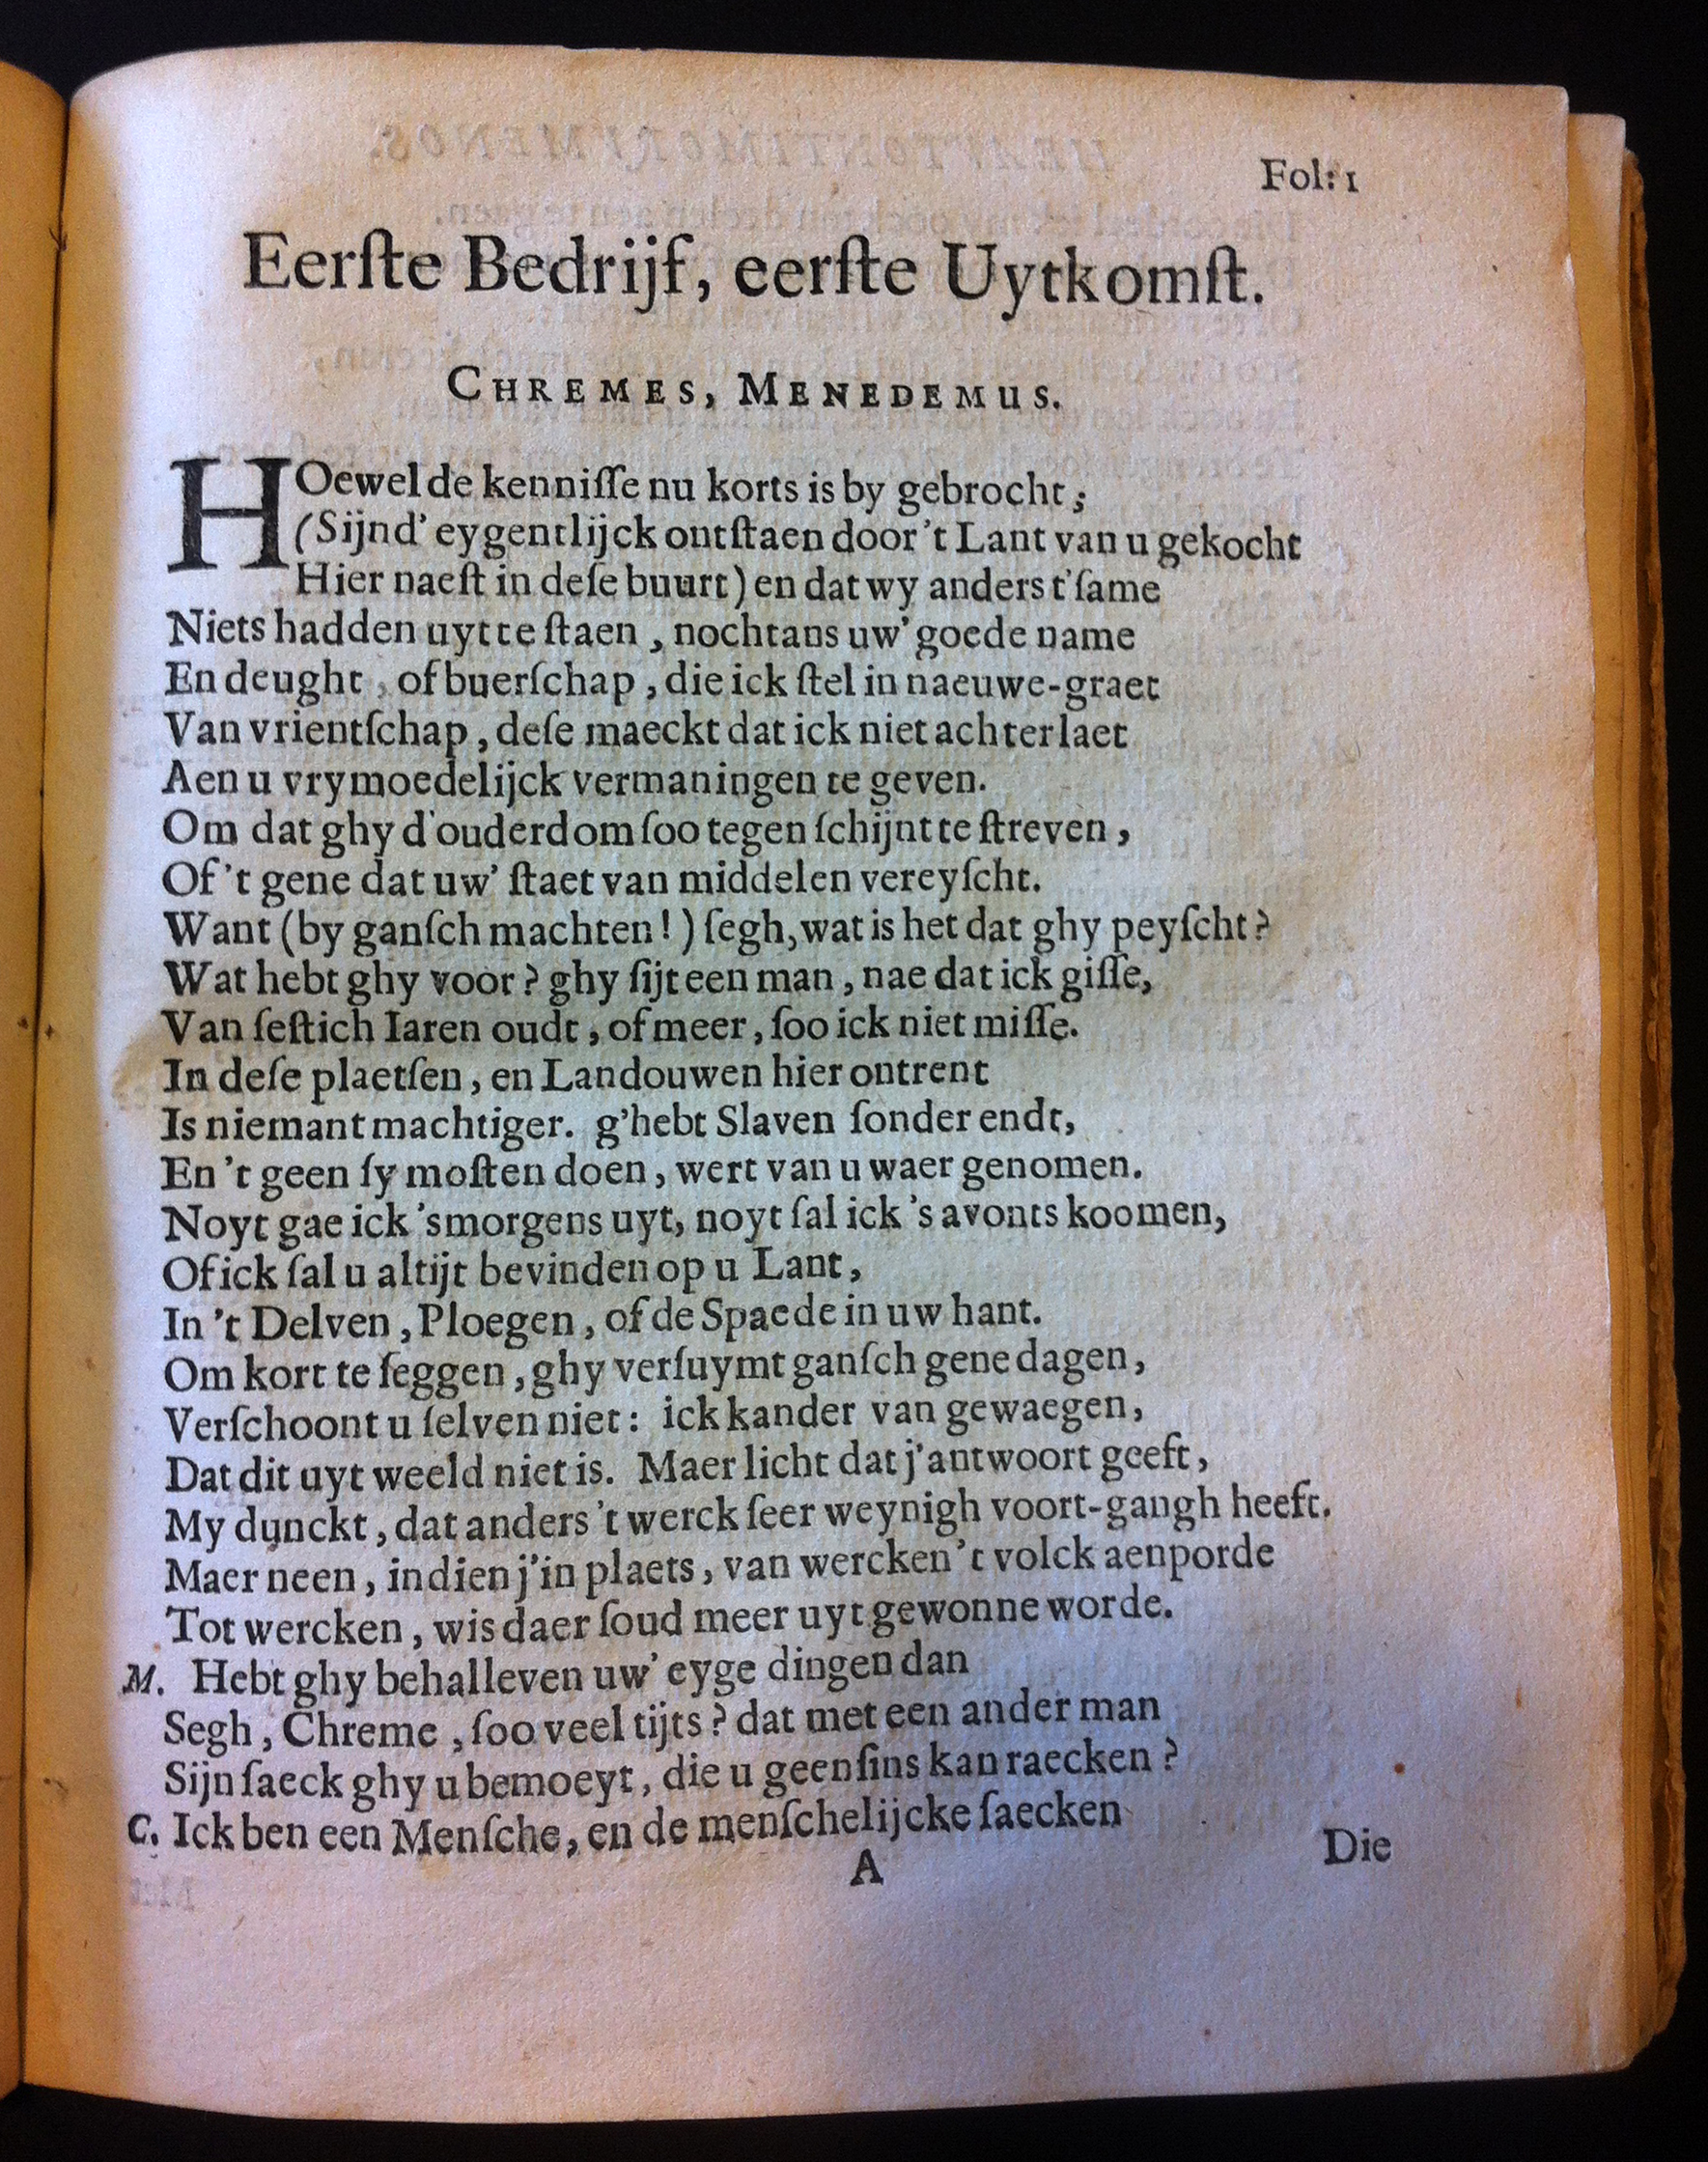 Fol: 1
Eerſte Bedrijf, eerſte Uytkomſt.
CHREMES, MENEDEMUS.
HOewel de kenniſſe nu korts is by gebrocht;
(Sijnd' eygentlijck ontſtaen door 't Lant van u gekocht
Hier naeſt in deſe buurt) en dat wy anders t'ſame
Niets hadden uyt te ſtaen, nochtans uw' goede name
En deught, of buerſchap, die ick ſtel in naeuwe-graet
Van vrientſchap, deſe maeckt dat ick niet achterlaet
Aen u vrymoedelijck vermaningen te geven.
Om dat ghy d'ouderdom ſoo tegen ſchijnt te ſtreven,
Of 't gene dat uw' ſtaet van middelen vereyſcht.
Want (by ganſch machten!) ſegh, wat is het dat ghy peyſcht?
Wat hebt ghy voor? ghy ſijt een man, nae dat ick giſſe,
Van ſeſtich Iaren oudt, of meer, ſoo ick niet miſſe.
In deſe plaetſen, en Landouwen hier ontrent
Is niemant machtiger. g'hebt Slaven ſonder endt,
En 't geen ſy moſten doen, wert van u waer genomen.
Noyt gae ick 'smorgens uyt, noyt ſal ick 's avonts koomen,
Of ick ſal u altijt bevinden op u Lant,
In 't Delven, Ploegen, of de Spaede in uw hant.
Om kort te ſeggen, ghy verſuymt ganſch gene dagen,
Verſchoont u ſelven niet: ick kander van gewaegen,
Dat dit uyt weeld niet is. Maer licht dat j'antwoort geeft,
My dunckt, dat anders 't werck ſeer weynigh voort-gangh heeft.
Maer neen, indien j'in plaets, van wercken 't volck aenporde
Tot wercken, wis daer ſoud meer uyt gewonne worde.
M. Hebt ghy behalleven uw' eyge dingen dan
Segh, Chreme, ſoo veel tijts? dat met een ander man
Sijn ſaeck ghy u bemoeyt, die u geenſins kan raecken?
C. Ick ben een Menſche, en de menſchelijcke ſaecken
A
Die